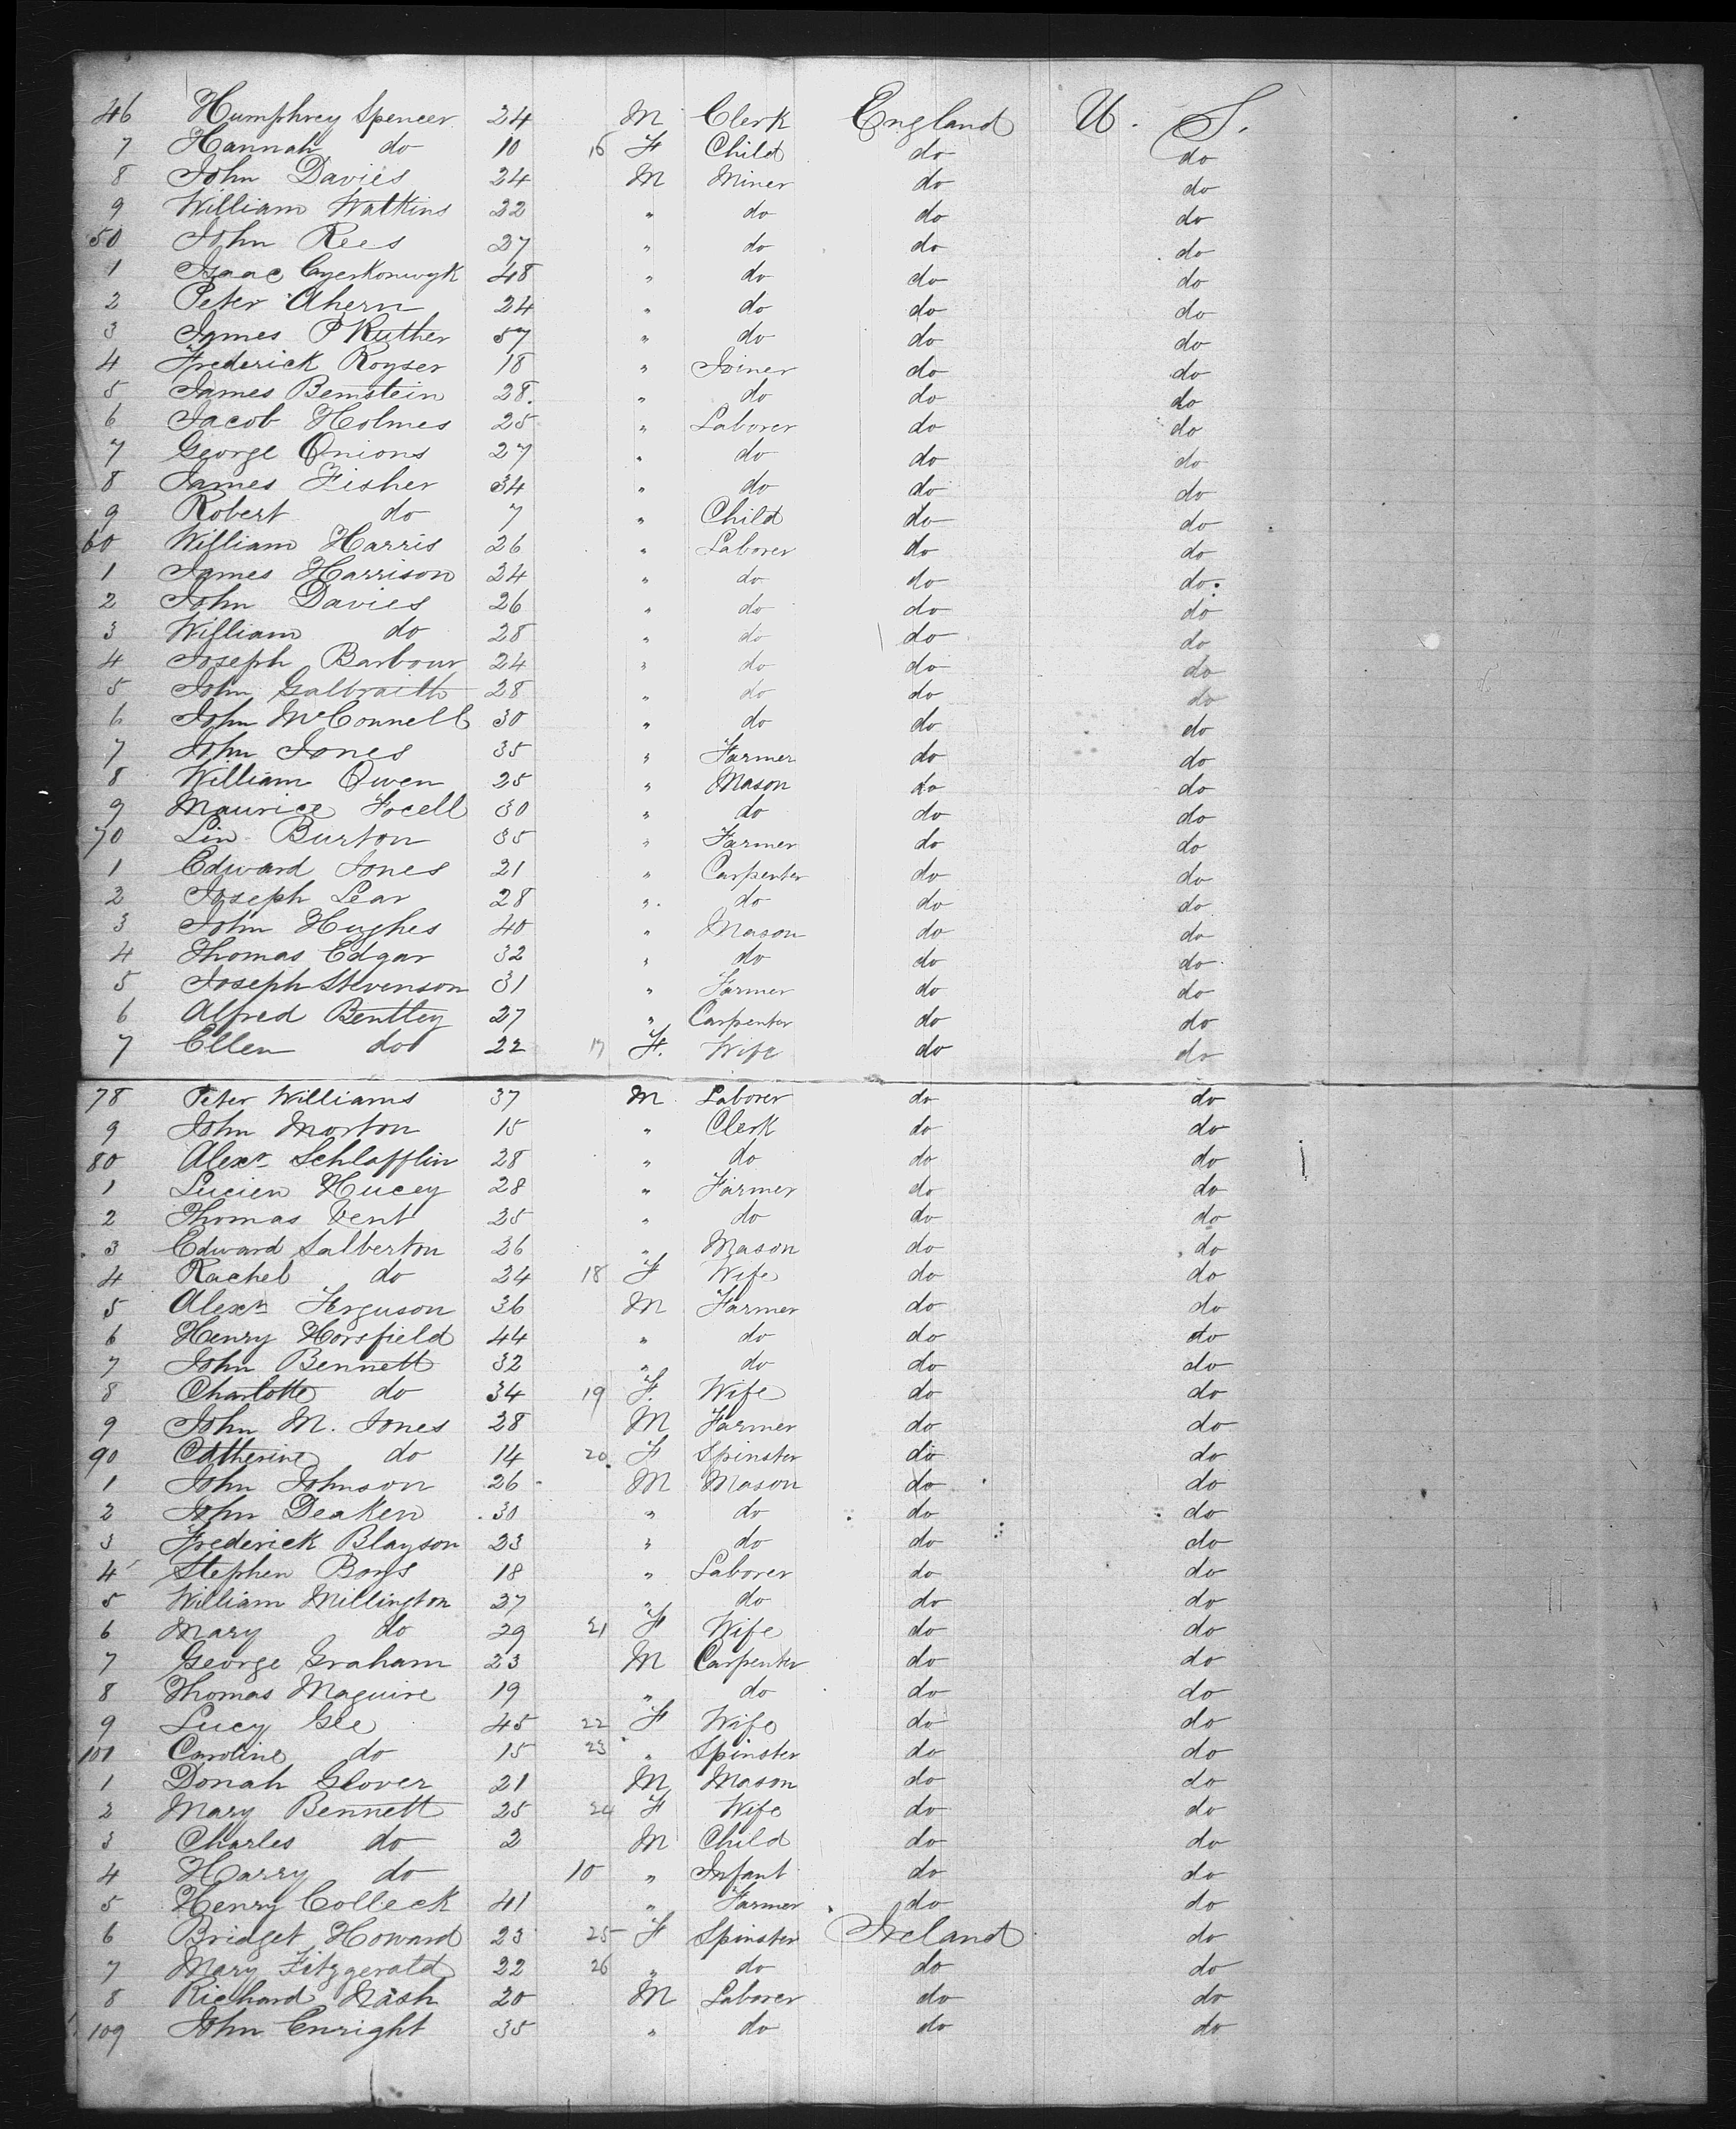 46 Humphrey Spencer 24 M Clerk England U. S.
7 Hannah do 10 16 F Child do do
8 John Davies 24 M Miner do do
9 William Watkins 22 " do do do
50 John Rees 27 " do do do
1 Isaac 48 " do do do
2 Peter Ahern 24 " do do do
3 James P Ruther 57 " do do do
4 Frederick Royser 18 " Joiner do do
5 James Bernstein 28. " do do do
6 Jacob Holmes 25 " Laborer do do
7 George Onions 27 " do do do
8 James Fisher 34 " do do do
9 Robert do 7 " Child do do
60 William Harris 26 " Laborer do do
1 James Harrison 24 " do do do
2 John Davies 26 " do do do
3 William do 28 " do do do
4 Joseph Barbour 24 " do do do
5 John Galbraith 28 " do do do
6 John McConnell 30 " do do do
7 John Jones 35 " Farmer do do
8 William Owen 25 " Mason do do
9 Maurice Focell 30 " do do do
70 Lin Burton 35 " Farmer do do
1 Edward Jones 21 " Carpenter do do
2 Joseph Lear 28 " do do do
3 John Hughes 40 " Mason do do
4 Thomas Edgar 32 " do do do
5 Joseph Stevenson 31 " Farmer do do
6 Alfred Bentley 27 " Carpenter do do
7 Ellen do 22 17 F. Wife do do
78 Peter Williams 37 M Laborer do do
9 John Morton 15 " Clerk do do
80 Alexr Schlafflin 28 " do do do
1 Lucien Hucey 28 " Farmer do do
2 Thomas Vent 25 " do do do
3 Edward Salberton 26 " Mason do do
4 Rachel do 24 18 F Wife do do
5 Alexr Ferguson 36 M Farmer do do
6 Henry Horsfield 44 " do do do
7 John Bennett 32 " do do do
8 Charlotte do 34 19 F. Wife do do
9 John M. Jones 28 M Farmer do do
90 Catherine do 14 20 F Spinster do do
1 John Johnson 26 M Mason do do
2 John Deaken 30 " do do do
3 Frederick Blayson 23 " do do do
4 Stephen Boys 18 " Laborer do do
5 William Millington 27 " do do do
6 Mary do 29 21 F Wife do do
7 George Graham 23 M Carpenter do do
8 Thomas Maguire 19 " do do do
9 Lucy Gee 45 22 F Wife do do
101 Caroline do 15 23 " Spinster do do
1 Donah Glover 21 M Mason do do
2 Mary Bennett 25 24 F Wife do do
3 Charles do 2 M Child do do
4 Harry do 10 " Infant do do
5 Henry Colleck 41 " Farmer do do
6 Bridget Howard 23 25 F Spinster Ireland do
7 Mary Fitzgerald 22 26 " do do do
8 Richard Nash 20 M Laborer do do
109 John Enright 35 " do do do